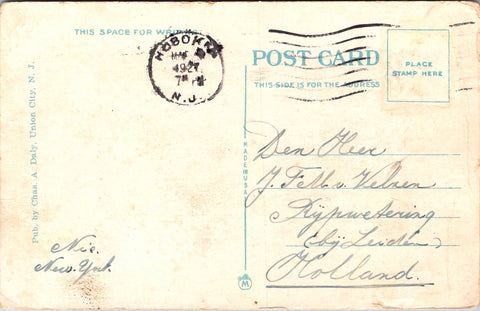 THIS SPACE FOR WRITING
HOBOKEN
1927
7 PM
N.J.
POST CARD
THIS SIDE IS FOR THE ADDRESS
PLACE
STAMP HERE
Pub. by Chas. A. Daly, Union City, N. J.
MADE IN USA
Den Heer
J. Fell v. Velzen
Rijpwetering
(bij Leiden)
Holland.
Nic.
New. York.
M